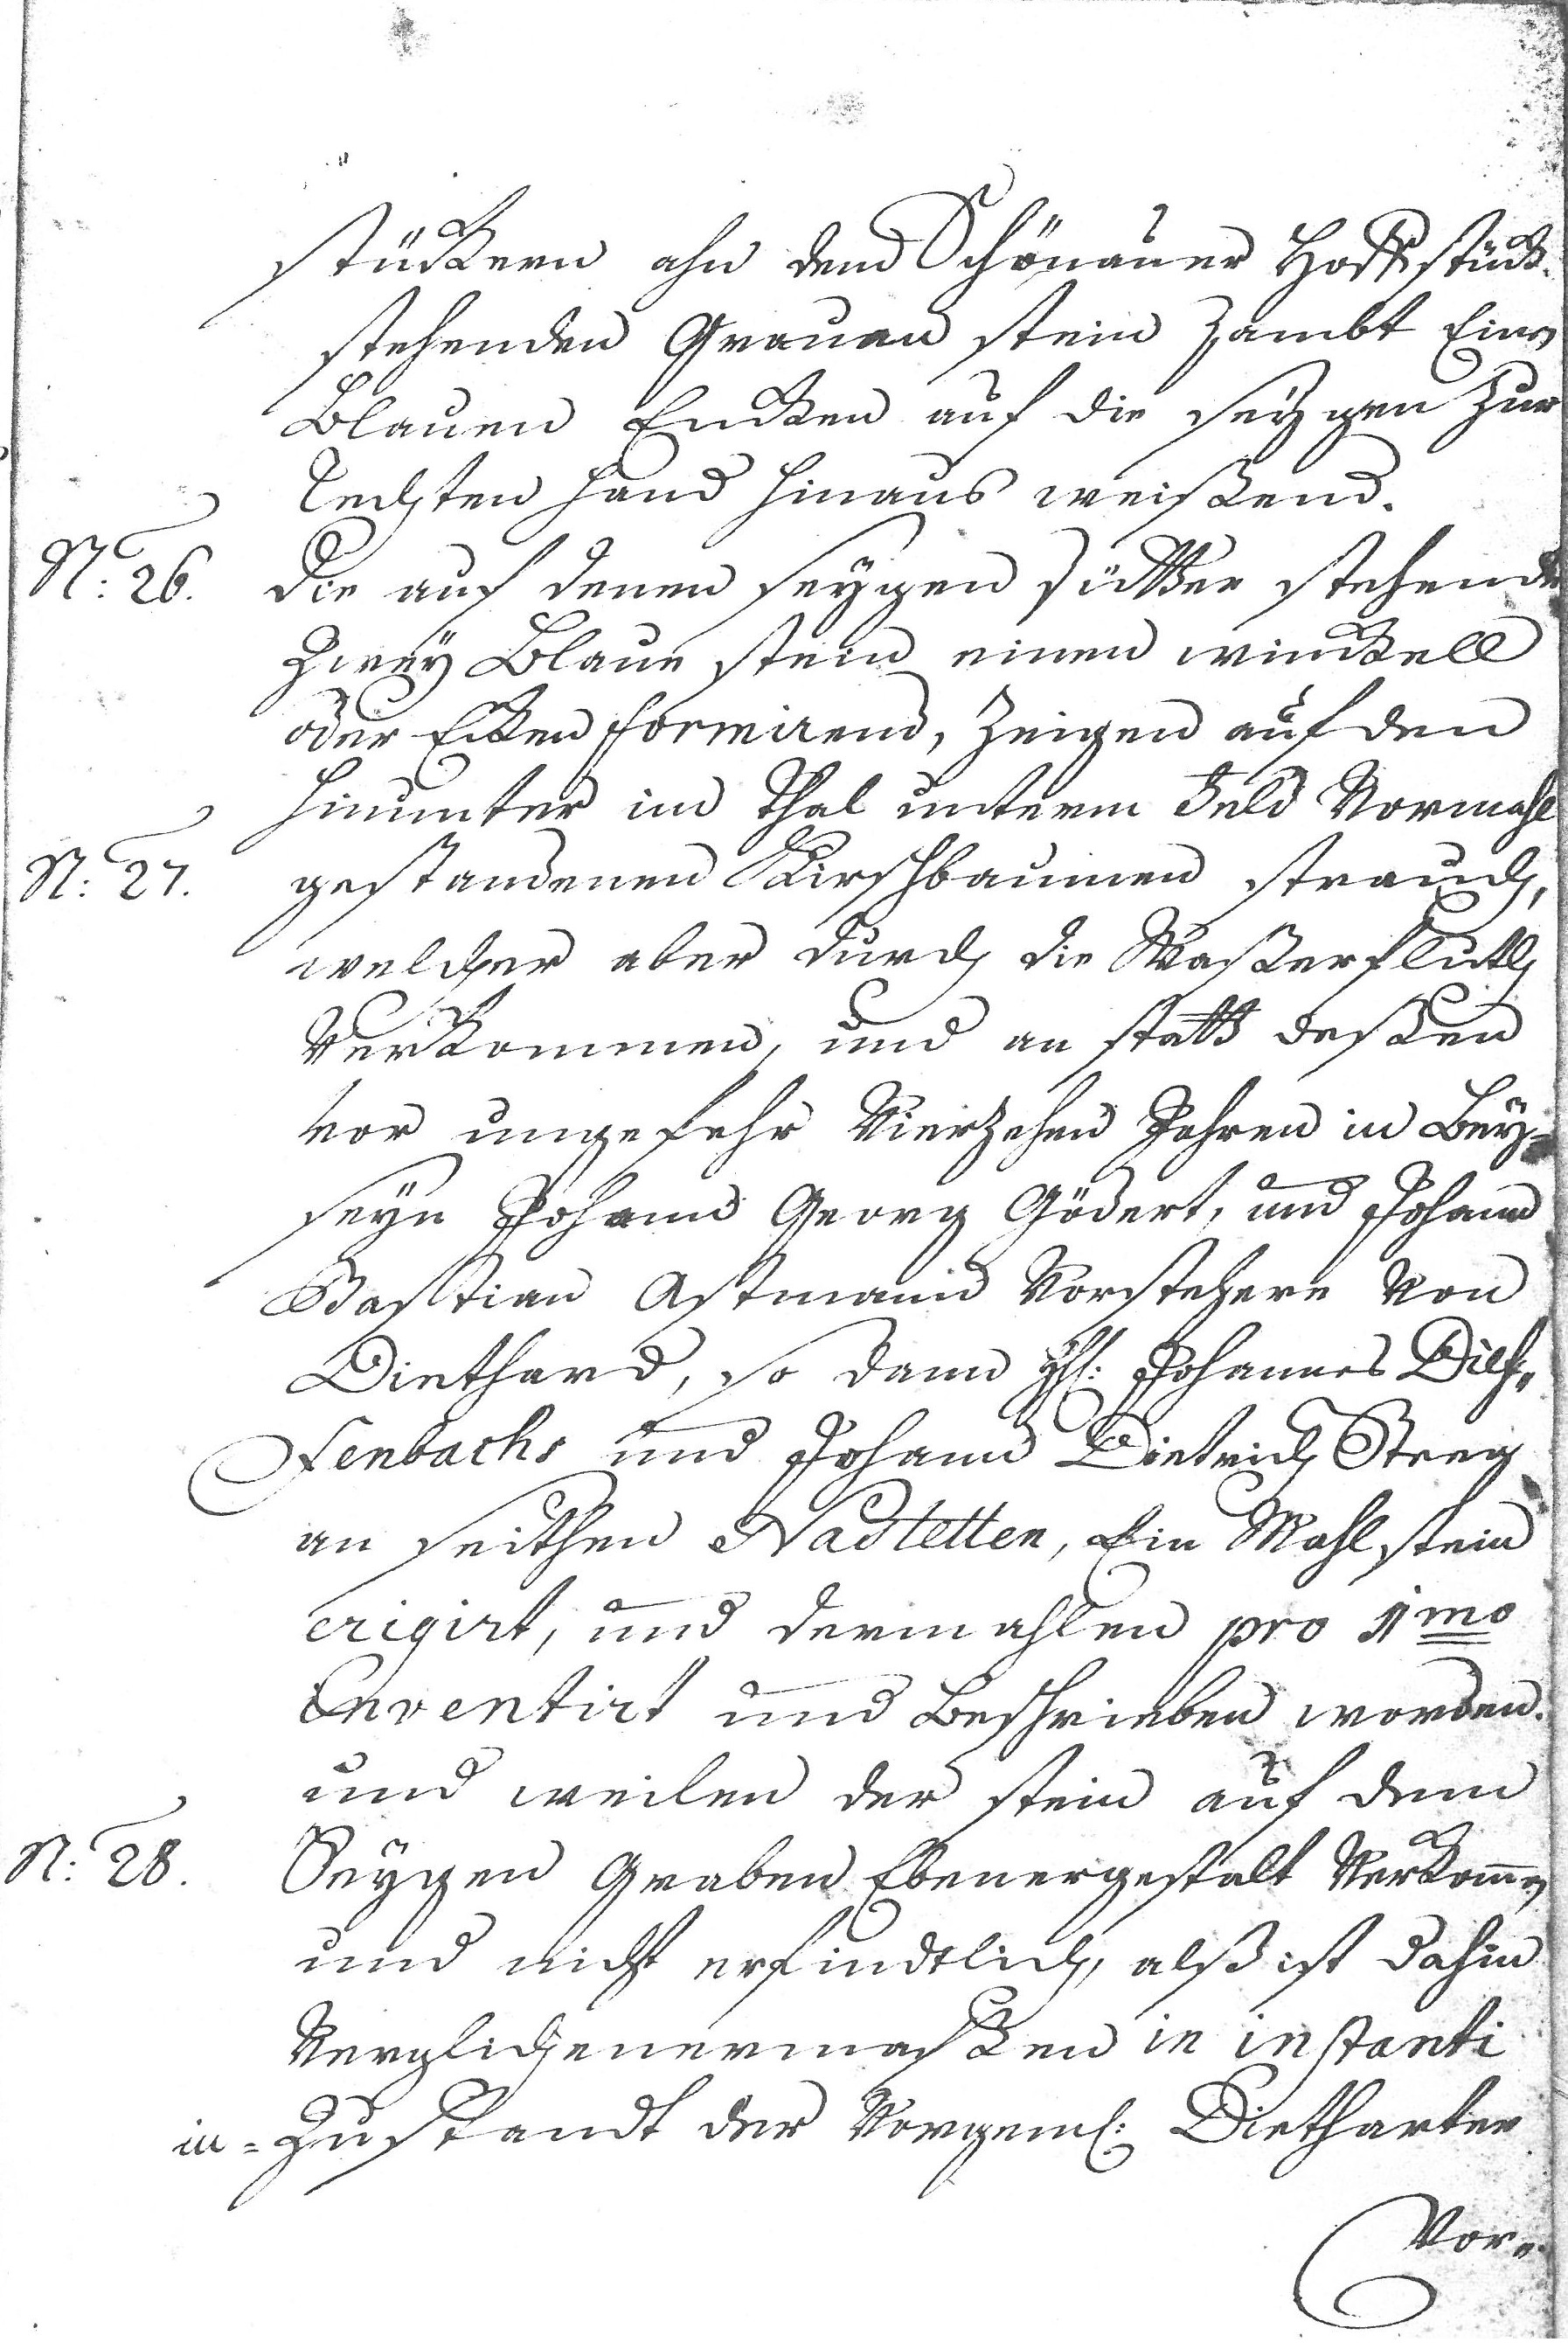 stückern ahn dem Schönauer Hoffstück
stehenden Grauen stein zambt Einen
Blauen Endten auf die seÿgen Zur
rechten hand hinaus weißend.
N: 26. Die auf denen seÿgen stehende
Zweÿ Blaue stein einen winckell
oder Ecken formirend, Zeigen auf den
hinunter im Thal unterm Feld Vormahl
N: 27. gestandenen Kirschbaumen strauch,
welcher aber durch die Waßerfluth
Verkommen, und an statt deßen
vor ungefehr Vierzehen Jahren in Beÿ-
seÿn Johann Georg Gödert, und Johann
Bastian Astmann Vorstehere Von
Diethard, so dann Johannes Dilf-
fenbachs und Johann Dietrich Streg
an seithen Nastetten, Ein Mahlstein
erigirt, und dermahlen pro 1mo
inventirt und Beschrieben worden.
und weilen der stein auf dem
N: 28. Seÿgen Graben Ebenergestalt Verkom̅en
und nicht erfindtlich, alß ist dahin
Verglichenermaßen in instanti
in= Zustandt der Vorgeml: Dietharter
Vor-